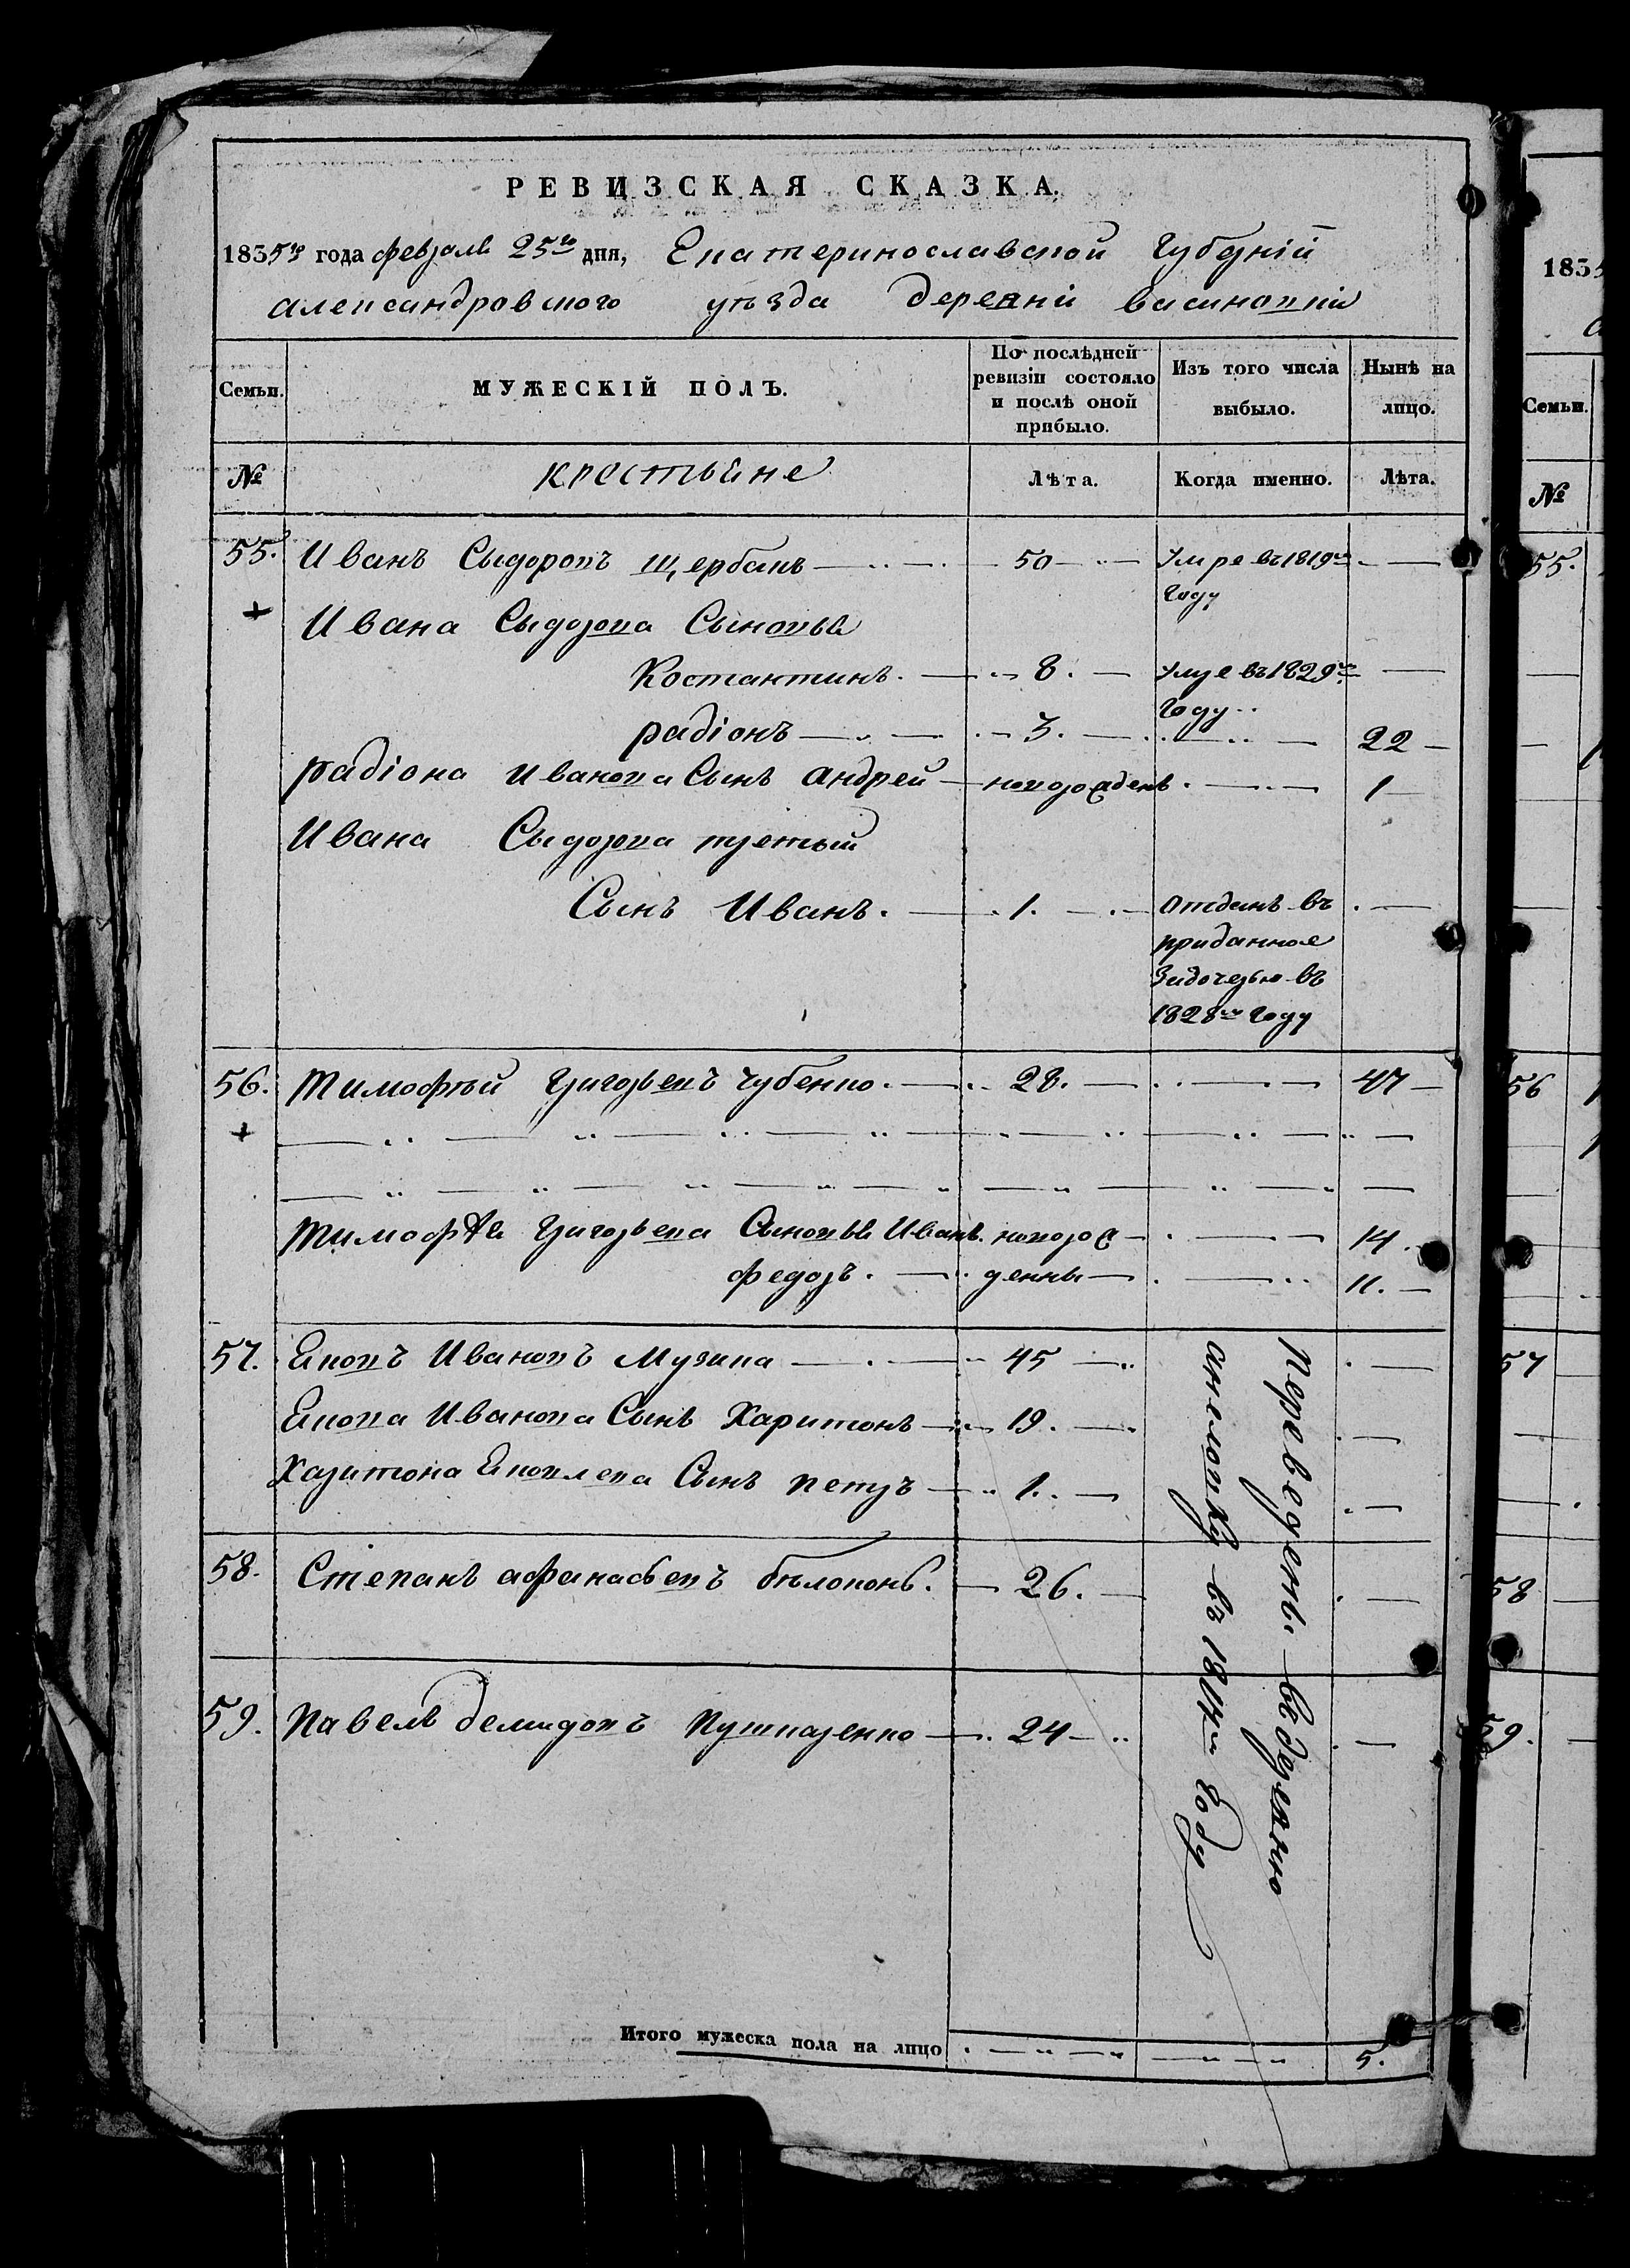 РЕВИЗСКАЯ СКАЗКА.
1835го года февраля 25го дня, Екатеринославской Губерніи
александровского уезда деревни васиновки
Семьи. МУЖЕСКІЙ ПОЛЪ. По послѣдней ревизіи состояло и послѣ оной прибыло. Изъ того числа выбыло. Нынѣ на лицо.
№ крестьяне Лѣта. Когда именно. Лѣта.
55. Иванъ Сыдоровъ Щербань 50 Умре въ 1819м
году
Ивана Сыдорова Сыновья
Костантинъ. 8. Умре въ 1829м
году
радіонъ 3. 22
радіона Иванова Сынъ андрей новорожденъ 1
Ивана Сыдорова третьий
Сынъ Иванъ. 1. отданъ въ
приданное
задочерью въ
1828м году
56. Тимофѣй Григорьевъ Чубенко. 28. 47
Тимофѣя Григорьева Сыновья Иванъ. новорож 14.
федоръ. денны 11.
57. Яковъ Ивановъ Музика 45
Якова Иванова Сынъ Харитонъ 19.
Харитона Яковлева Сынъ петръ 1.
переведены въ деревню
въ 1814м году
58. Степанъ афанасьевъ бѣлоконь. 26.
59. Павелъ демидовъ пушкаренко 24
Итого мужеска пола на лицо 5.
1835
Семьи.
№
55.
56
57
58
59.